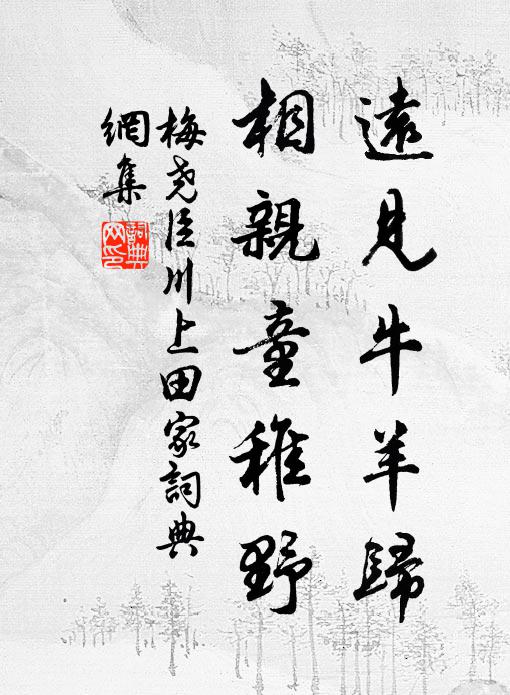 遠見牛羊歸
相親童稚野
梅堯臣川上田家詞典
網集
詞典網印